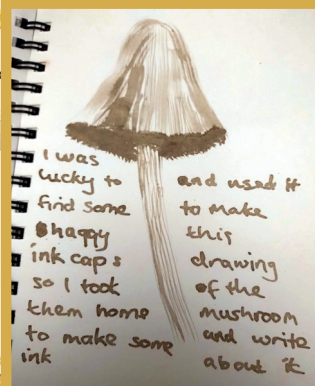 I was
lucky to
find some
shaggy
ink caps
so I took
them home
to make some
ink
and used it
to make
this
drawing
of the
mushroom
and write
about it